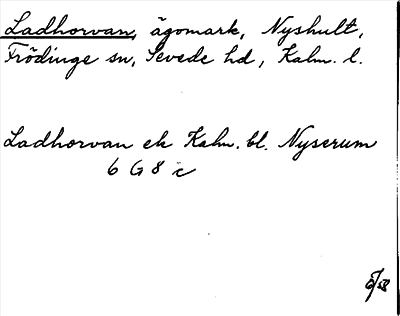 Ladhorvan, ägomark, Nyshult,
Frödinge sn, Sevede hd, Kalm. l.
Ladhorvan ek Kalm. bl. Nyserum
6 G 8 c